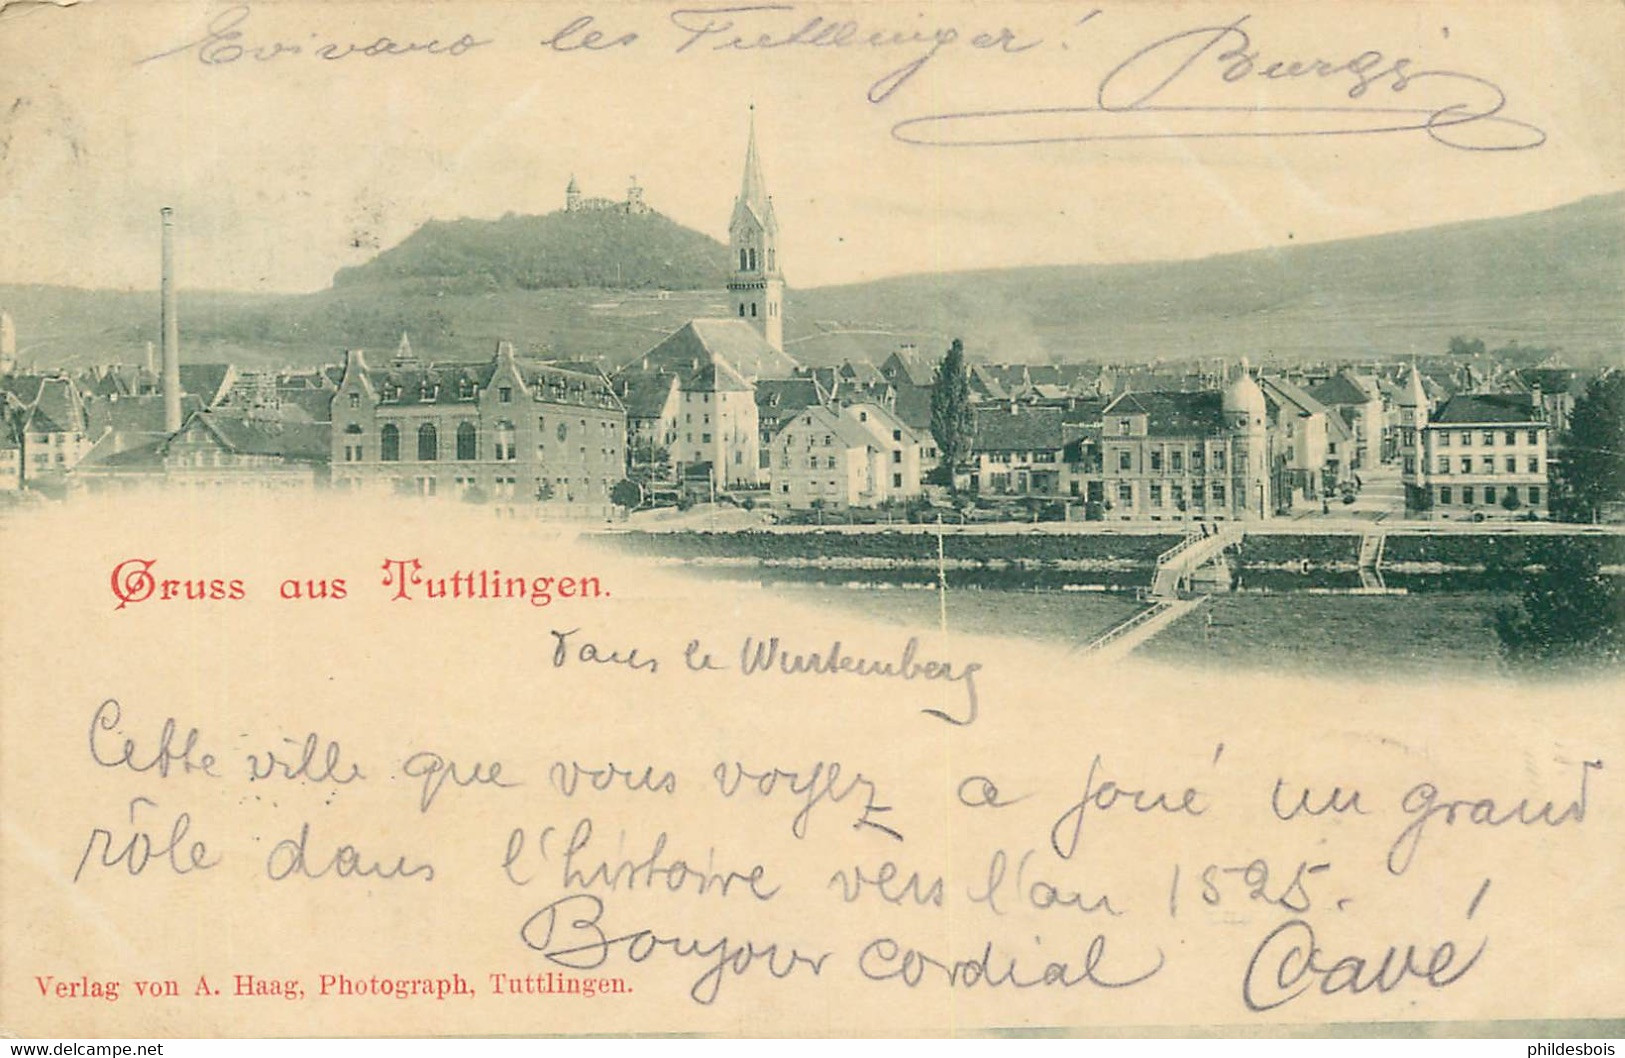 Evivano les Tuttlinger! Burgi
Gruss aus Tuttlingen.
dans le Wurtemberg
Cette ville que vous voyez a joué un grand
rôle dans l'histoire vers l'an 1525.
Bonjour cordial Cavé
Verlag von A. Haag, Photograph, Tuttlingen.
delcampe.net
phildesbois